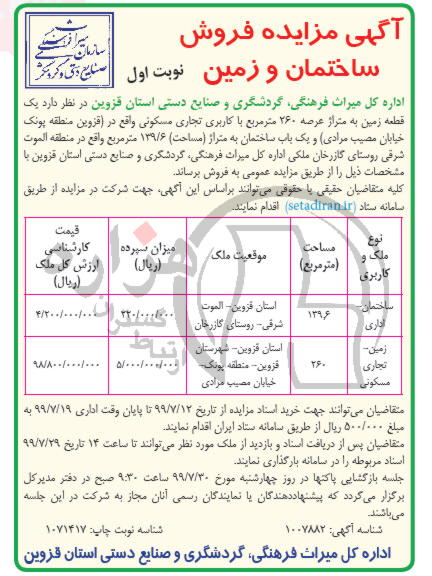 آگهی مزایده فروش
ساختمان و زمین نوبت اول
اداره کل میراث فرهنگی، گردشگری و صنایع دستی استان قزوین در نظر دارد یک
قطعه زمین به متراژ عرصه ۲۶۰ مترمربع با کاربری تجاری مسکونی واقع در (قزوین منطقه پونک
خیابان مصیب مرادی) و یک باب ساختمان به متراژ (مساحت) ۱۳۹/۶ مترمربع واقع در منطقه الموت
شرقی روستای گازرخان ملکی اداره کل میراث فرهنگی، گردشگری و صنایع دستی استان قزوین با
مشخصات ذیل را از طریق مزایده عمومی به فروش برساند.
کلیه متقاضیان حقیقی یا حقوقی می‌توانند براساس این آگهی، جهت شرکت در مزایده از طریق
سامانه ستاد (setadiran.ir) اقدام نمایند.
نوع ملک و کاربری | مساحت (مترمربع) | موقعیت ملک | میزان سپرده (ریال) | قیمت کارشناسی ارزش کل ملک (ریال)
ساختمان- اداری | ۱۳۹٫۶ | استان قزوین- الموت شرقی- روستای گازرخان | ۳۲۰/۰۰۰/۰۰۰ | ۴/۲۰۰/۰۰۰/۰۰۰
زمین- تجاری مسکونی | ۲۶۰ | استان قزوین- شهرستان قزوین- منطقه پونک- خیابان مصیب مرادی | ۵/۰۰۰/۰۰۰/۰۰۰ | ۹۸/۸۰۰/۰۰۰/۰۰۰
متقاضیان می‌توانند جهت خرید اسناد مزایده از تاریخ ۹۹/۷/۱۲ تا پایان وقت اداری ۹۹/۷/۱۹ به
مبلغ ۵۰۰/۰۰۰ ریال از طریق سامانه ستاد ایران اقدام نمایند.
متقاضیان پس از دریافت اسناد و بازدید از ملک مورد نظر می‌توانند تا ساعت ۱۴ تاریخ ۹۹/۷/۲۹
اسناد مربوطه را در سامانه بارگذاری نمایند.
جلسه بازگشایی پاکتها در روز چهارشنبه مورخ ۹۹/۷/۳۰ ساعت ۹:۳۰ صبح در دفتر مدیرکل
برگزار می‌گردد که پیشنهاددهندگان یا نمایندگان رسمی آنان مجاز به شرکت در این جلسه
می‌باشند.
شناسه آگهی: ۱۰۰۷۸۸۲ شناسه نوبت چاپ: ۱۰۷۱۴۱۷
اداره کل میراث فرهنگی، گردشگری و صنایع دستی استان قزوین